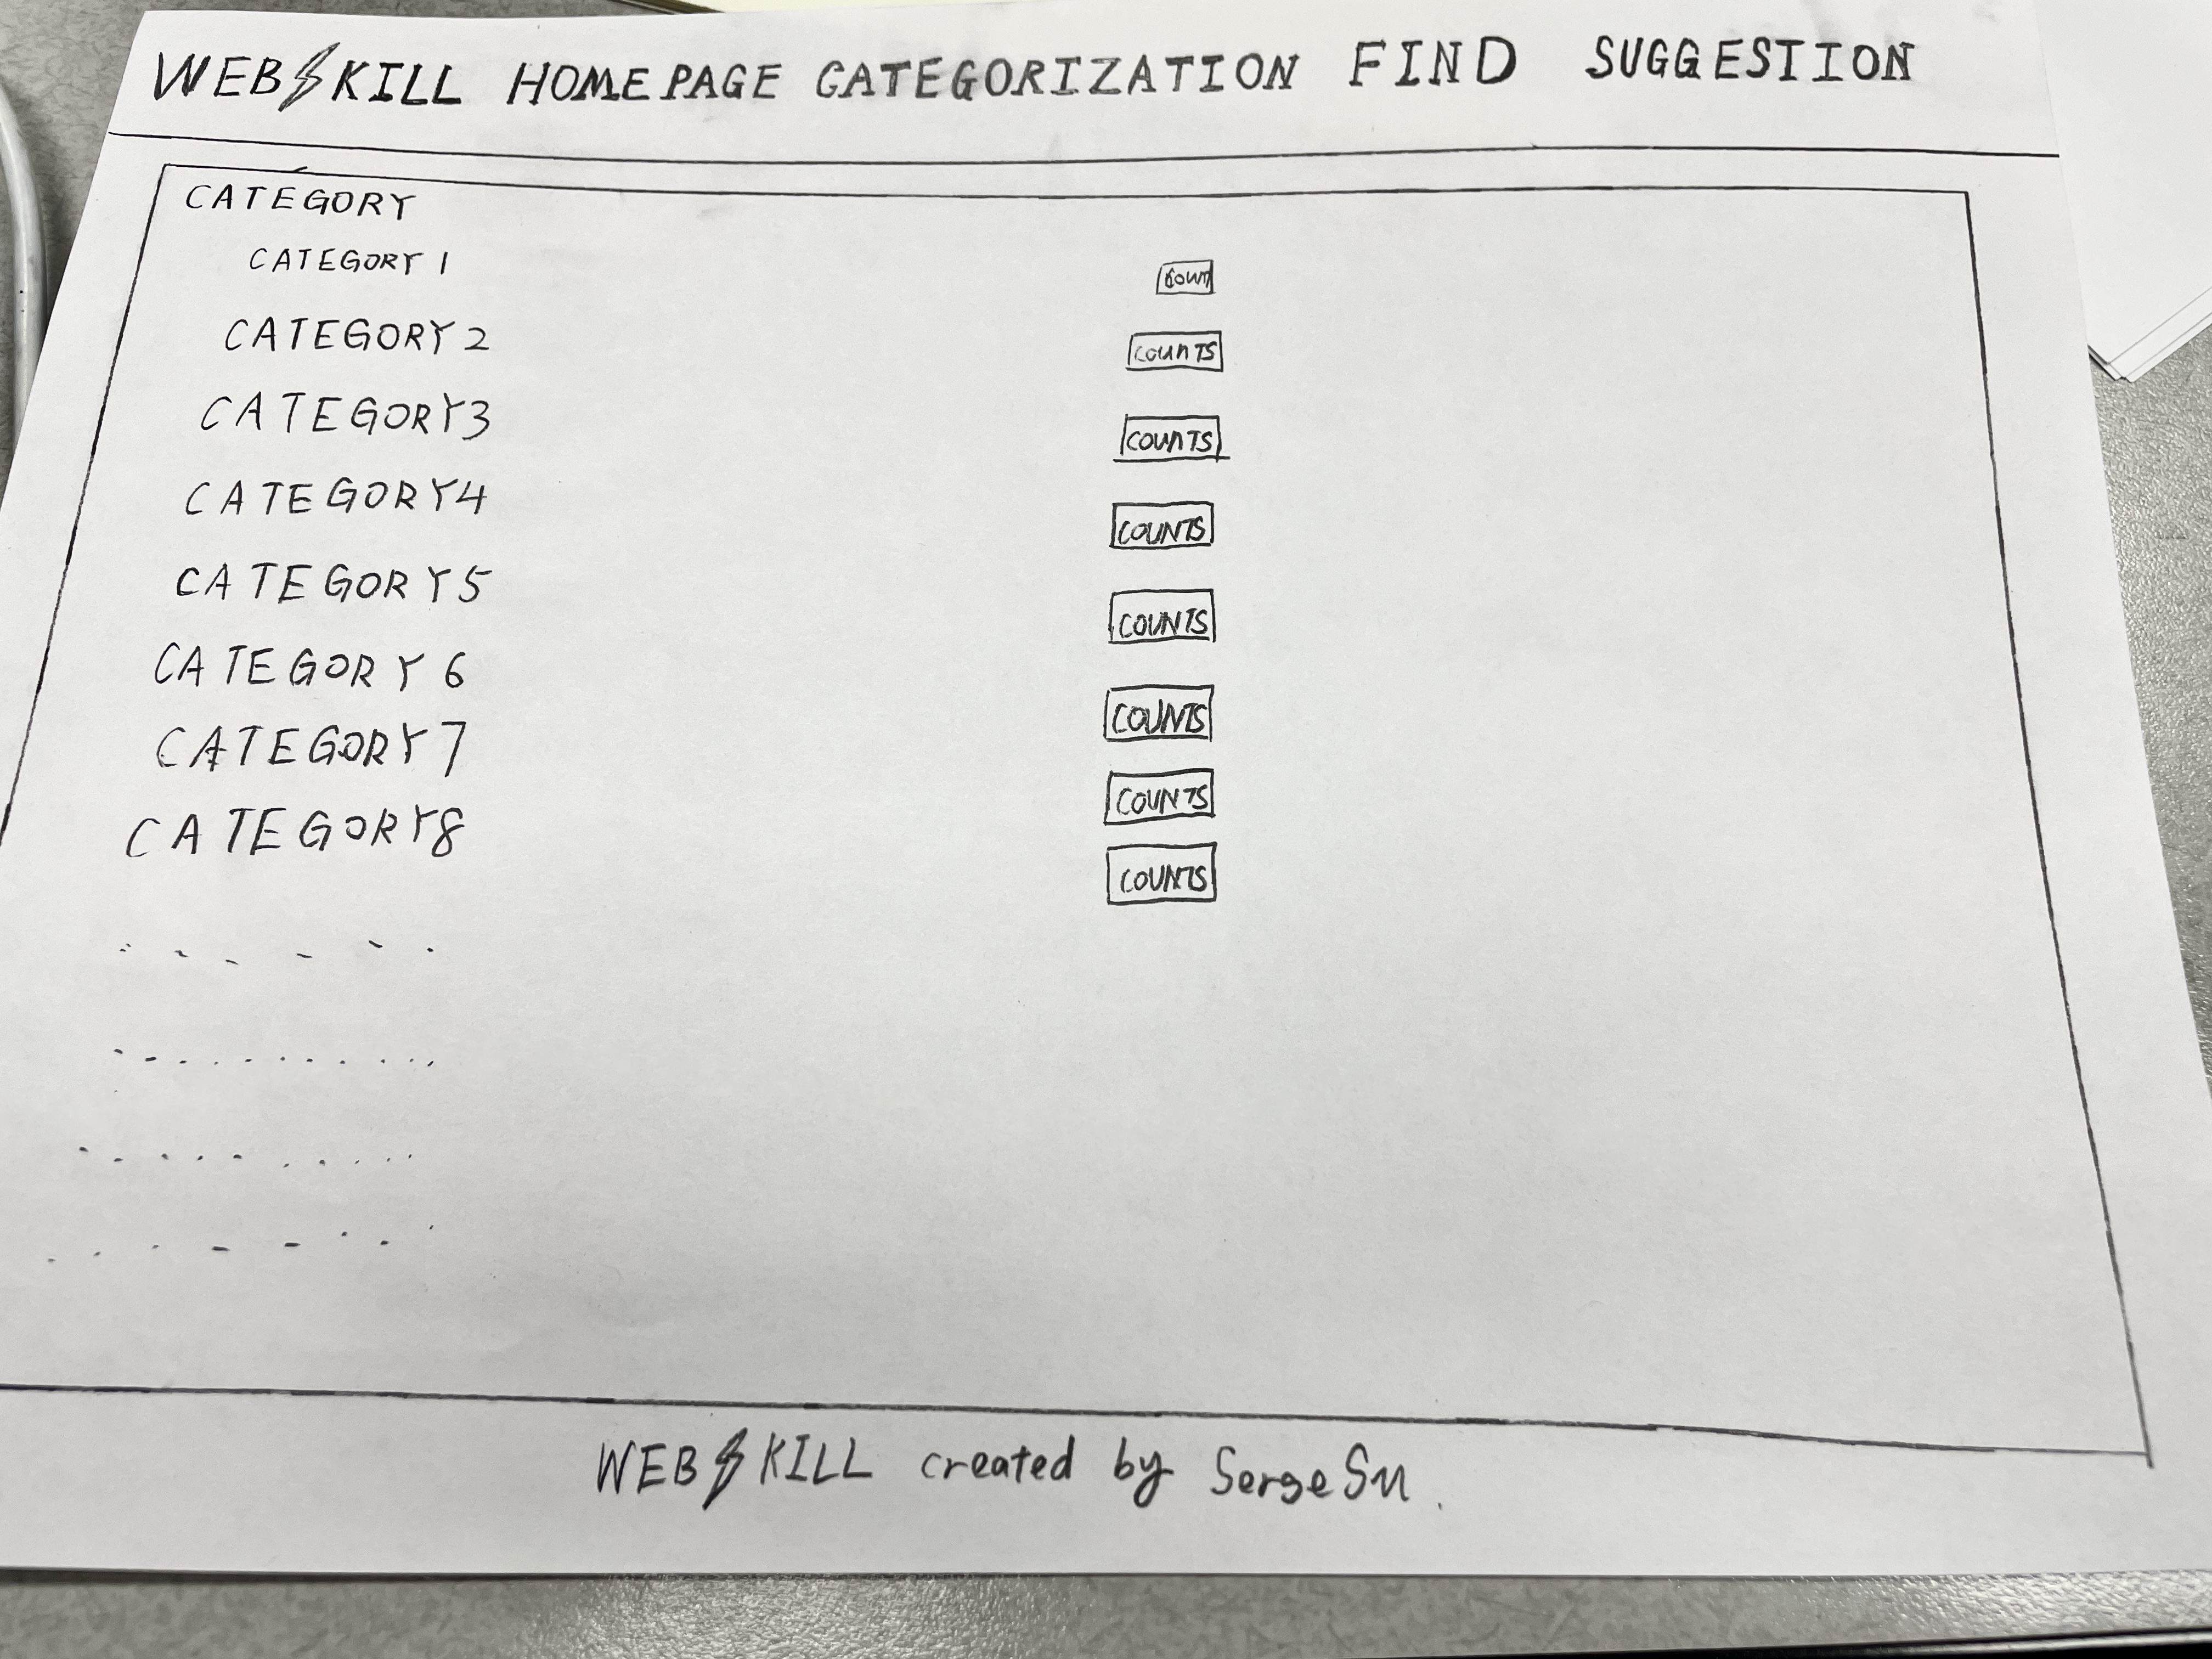 WEB⚡KILL HOMEPAGE CATEGORIZATION FIND SUGGESTION
CATEGORY
CATEGORY 1 COUNT
CATEGORY 2 COUNTS
CATEGORY3 COUNTS
CATEGORY4 COUNTS
CATEGORY5 COUNTS
CATEGORY 6 COUNTS
CATEGORY7 COUNTS
CATEGORY8 COUNTS
WEB⚡KILL created by SergeSu.